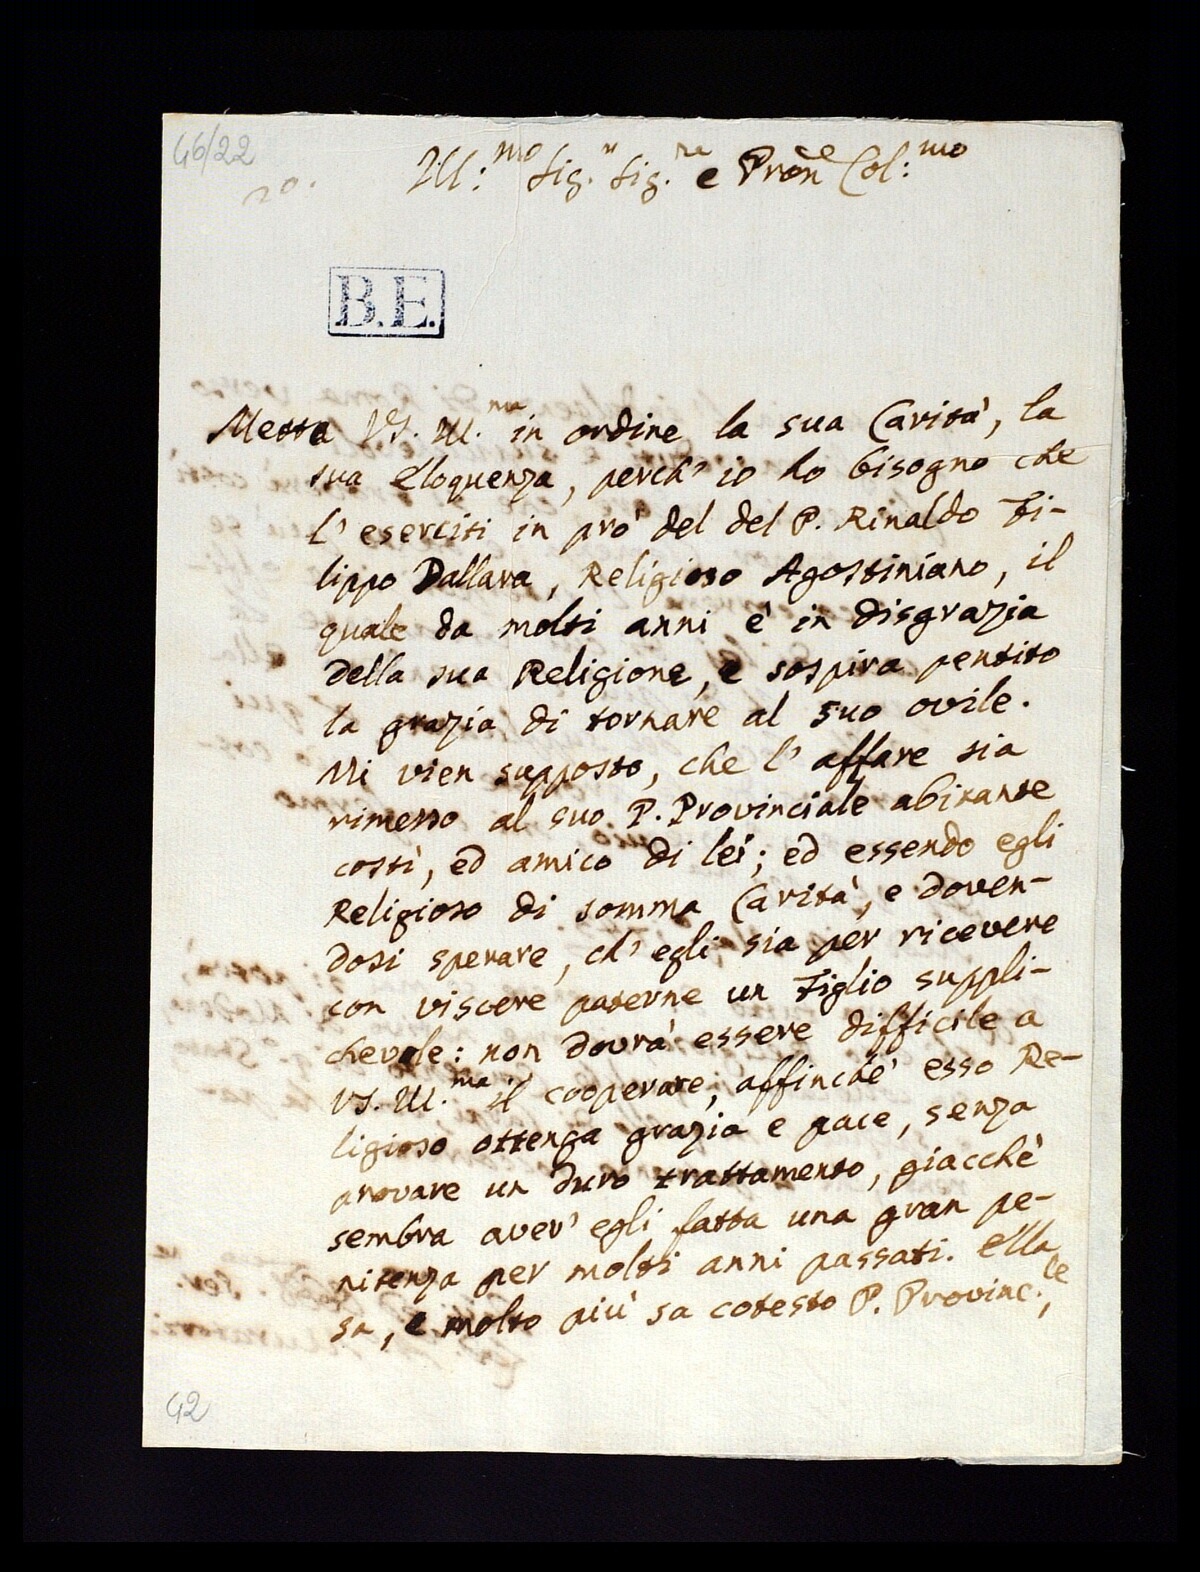 46/22
20.
Ill:mo Sig.r Sig.re e Pron Col:mo
B.E.
Metta VS. Ill.ma in ordine la sua Carità, la
sua eloquenza, perch' io ho bisogno che
l' eserciti in prò del del P. Rinaldo Fi-
lippo Dallara, Religioso Agostiniano, il
quale da molti anni è in disgrazia
della sua Religione, e sospira pentito
la grazia di tornare al suo ovile.
Mi vien supposto, che l' affare sia
rimesso al suo P. Provinciale abitante
costì, ed amico di lei; ed essendo egli
Religioso di somma Carità, e doven-
dosi sperare, ch' egli sia per ricevere
con viscere paterne un Figlio suppli-
chevole: non dovrà essere difficile a
VS. Ill.ma il cooperare, affinchè esso Re-
ligioso ottenga grazia e pace, senza
provare un duro trattamento, giacchè
sembra aver' egli fatta una gran pe-
nitenza per molti anni passati. Ella
sa, e molto più sa cotesto P. Provinc.le,
42